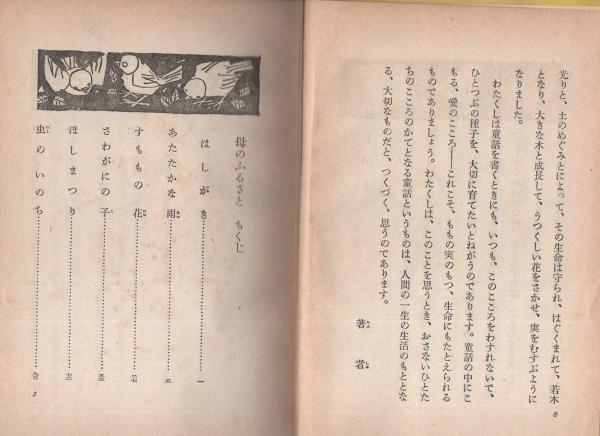 光りと、土のめぐみとによって、その生命は守られ、はぐくまれて、若木
となり、大きな木と成長して、うつくしい花をさかせ、実をむすぶように
なりました。
わたくしは童話を書くときにも、いつも、このこころをわすれないで、
ひとつぶの種子を、大切に育てたいとねがうのであります。童話の中にこ
もる、愛のこころ——これこそ、ももの実のもつ、生命にもたとえられる
ものでありましょう。わたくしは、このことを思うとき、おさないひとた
ちのこころのかてとなる童話というものは、人間の一生の生活のもととな
る、大切なものだと、つくづく、思うのであります。
著者
母のふるさと もくじ
はしがき……………………一
あたたかな雨……………………五
すももの花……………………
さわがにの子……………………
ほしまつり……………………
虫のいのち……………………